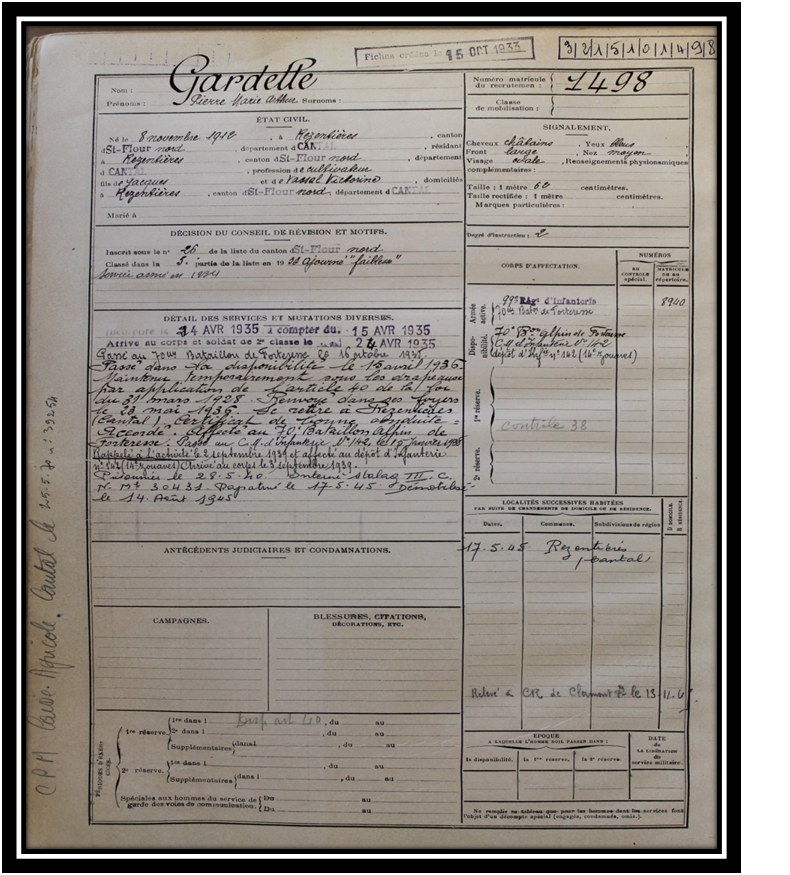 Fiches créées le 15 OCT 1933
3 2 1 5 1 0 1 4 9 8
Nom : Gardelle
Prénoms : Pierre Marie Arthur Surnoms :
Numéro matricule du recrutement : 1498
Classe de mobilisation :
ÉTAT CIVIL.
Né le 8 novembre 1912, à Rezentières, canton
d St-Flour nord, département d CANTAL, résidant
à Rezentières, canton d St-Flour nord, département
d CANTAL, profession de cultivateur
fils de Jacques et de Vassal Victorine, domiciliés
à Rezentières, canton d St-Flour nord, département d CANTAL
Marié à
SIGNALEMENT.
Cheveux châtains, Yeux bleus
Front large, Nez moyen
Visage ovale, Renseignements physionomiques
complémentaires :
Taille : 1 mètre 62 centimètres.
Taille rectifiée : 1 mètre centimètres.
Marques particulières :
Degré d'instruction : 2
DÉCISION DU CONSEIL DE RÉVISION ET MOTIFS.
Inscrit sous le n° 26 de la liste du canton d St-Flour nord
Classé dans la 5. partie de la liste en 1933 Ajourné "faiblesse"
Service armé en 1934
DÉTAIL DES SERVICES ET MUTATIONS DIVERSES.
14 AVR 1935 à compter du. 15 AVR 1935
Arrivé au corps et soldat de 2e classe le 24 AVR 1935
Passé au 70me Bataillon de Forteresse le 16 octobre 1935.
Passé dans la disponibilité le 15 avril 1936.
Maintenu temporairement sous les drapeaux
par application de l'article 40 de la loi
du 31 mars 1928. Renvoyé dans ses foyers
le 23 mai 1936. Se retire à Rezentières
(Cantal). Certificat de bonne conduite =
Accordé. Affecté au 70° Bataillon Alpin de
Forteresse. Passé au C.M. d'Infanterie N° 142, le 15 Janvier 1938
Rappelé à l'activité le 2 septembre 1939 et affecté au dépôt d'Infanterie
n° 142 (14e Zouaves) Arrivé au corps le 3 septembre 1939.
Prisonnier le 28.5.40. Interné stalag III. C.
N. Mle 30431. Rapatrié le 17.5.45. Démobilisé
le 14. Août 1945
CORPS D'AFFECTATION.
NUMÉROS
AU CONTRÔLE spécial.
MATRICULE OU AU répertoire.
Armée active.
99e Régt d'Infanterie 8940
70me Baton de Forteresse
Disponibilité.
70° Bon alpin de Forteresse
C.M. d'Infanterie N° 142
dépôt d'Infie n° 142 (14e Zouaves)
1re réserve.
contrôle 38
2e réserve.
LOCALITÉS SUCCESSIVES HABITÉES
PAR SUITE DE CHANGEMENTS DE DOMICILE OU DE RÉSIDENCE.
D DOMICILE. R RÉSIDENCE.
Dates. Communes. Subdivisions de région
17.5.45 Rezentières
Cantal
ANTÉCÉDENTS JUDICIAIRES ET CONDAMNATIONS.
CAMPAGNES.
BLESSURES, CITATIONS,
DÉCORATIONS, ETC.
Relevé CR de Clermont le 13-11-
PÉRIODES D'EXERCICES.
1re réserve. 1re dans l Disp art 40, du au
2e dans l , du au
(Supplémentaires) dans l , du au
2e réserve. 1re dans l , du au
(Supplémentaires) dans l , du au
Spéciales aux hommes du service de garde des voies de communication. Du au
Du au
ÉPOQUE
À LAQUELLE L'HOMME DOIT PASSER DANS :
la disponibilité. la 1re réserve. la 2e réserve.
DATE de LA LIBÉRATION du service militaire.
Ne remplir ce tableau que pour les hommes dont les services font
l'objet d'un décompte spécial (engagés, condamnés, omis.).
CPM Caisse. Agricole. Cantal le 25.5.70 n°